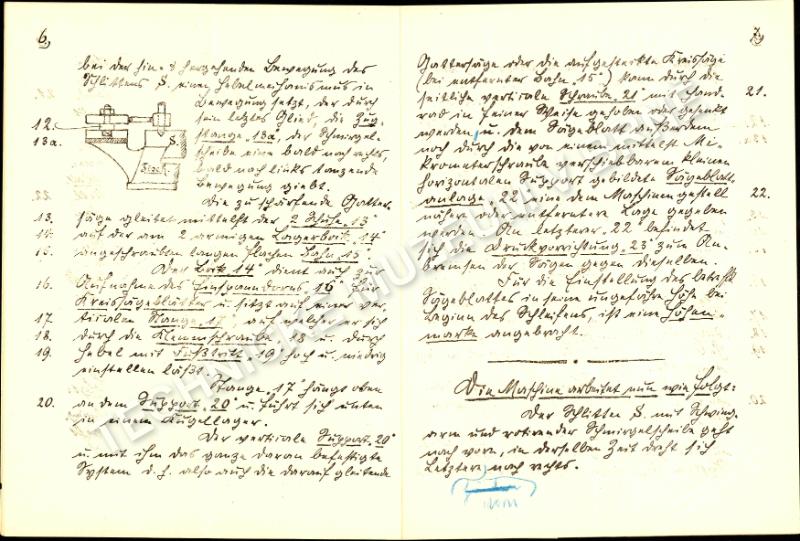 6,
bei der hin- & hergehenden Bewegung des
Schlittens S. einen Hebelmechanismus in
Bewegung setzt, der durch
sein letztes Glied, die Zug-
12.
stange „13a“, der Schmirgel-
13a.
scheibe eine bald nach rechts,
bald nach links tanzende
Bewegung giebt.
S.
Die zu schärfende Gatter-
13. säge gleitet mittelst der 2 Schuhe „13“
14. auf der am 2 armigen Lagerbock „14“
15. angeschraubten langen flachen Bahn „15“.
Der Bock „14“ dient auch zur
16. Aufnahme des Einspanndorns „16“ für
Kreissägeblätter u. sitzt auf einer ver-
17. ticalen Stange „17“ auf welcher er sich
18. durch die Klemmschraube „18“ u. durch
19. Hebel mit Fußtritt „19“ hoch u. niedrig
einstellen läßt.
Stange „17“ hängt oben
20. an dem Support „20“ u. führt sich unten
in einem Kugellager.
Der verticale Support „20“
u. mit ihm das ganze daran befestigte
System d. h. also auch die darauf gleitende
7,
Gattersäge oder die aufgesteckte Kreissäge
(bei entfernter Bahn „15“) kann durch die
seitliche verticale Schraube „21“ mit Hand- 21.
rad in feiner Weise gehoben oder gesenkt
werden, u. dem Sägeblatt außerdem
noch durch die von einem mittelst Mi-
krometerschraube verschiebbarem kleinen
horizontalen Support gebildete Sägeblatt-
anlage „22“ eine dem Maschinengestell 22.
nähere oder entferntere Lage gegeben
werden. An letzterer „22“ befindet
sich die Druckvorrichtung „23“ zum An-
bremsen der Sägen gegen dieselben.
Für die Einstellung des betreff.
Sägeblattes in seine ungefähre Höhe bei
Beginn des Schleifens, ist eine Höhen-
marke angebracht.
Die Maschine arbeitet nun wie folgt:
Der Schlitten S. mit Schwing-
arm und rotirender Schmirgelscheibe geht
nach vorn, in derselben Zeit dreht sich
Letztere nach rechts.
TECHNICKÉ MUZEUM V BRNĚ